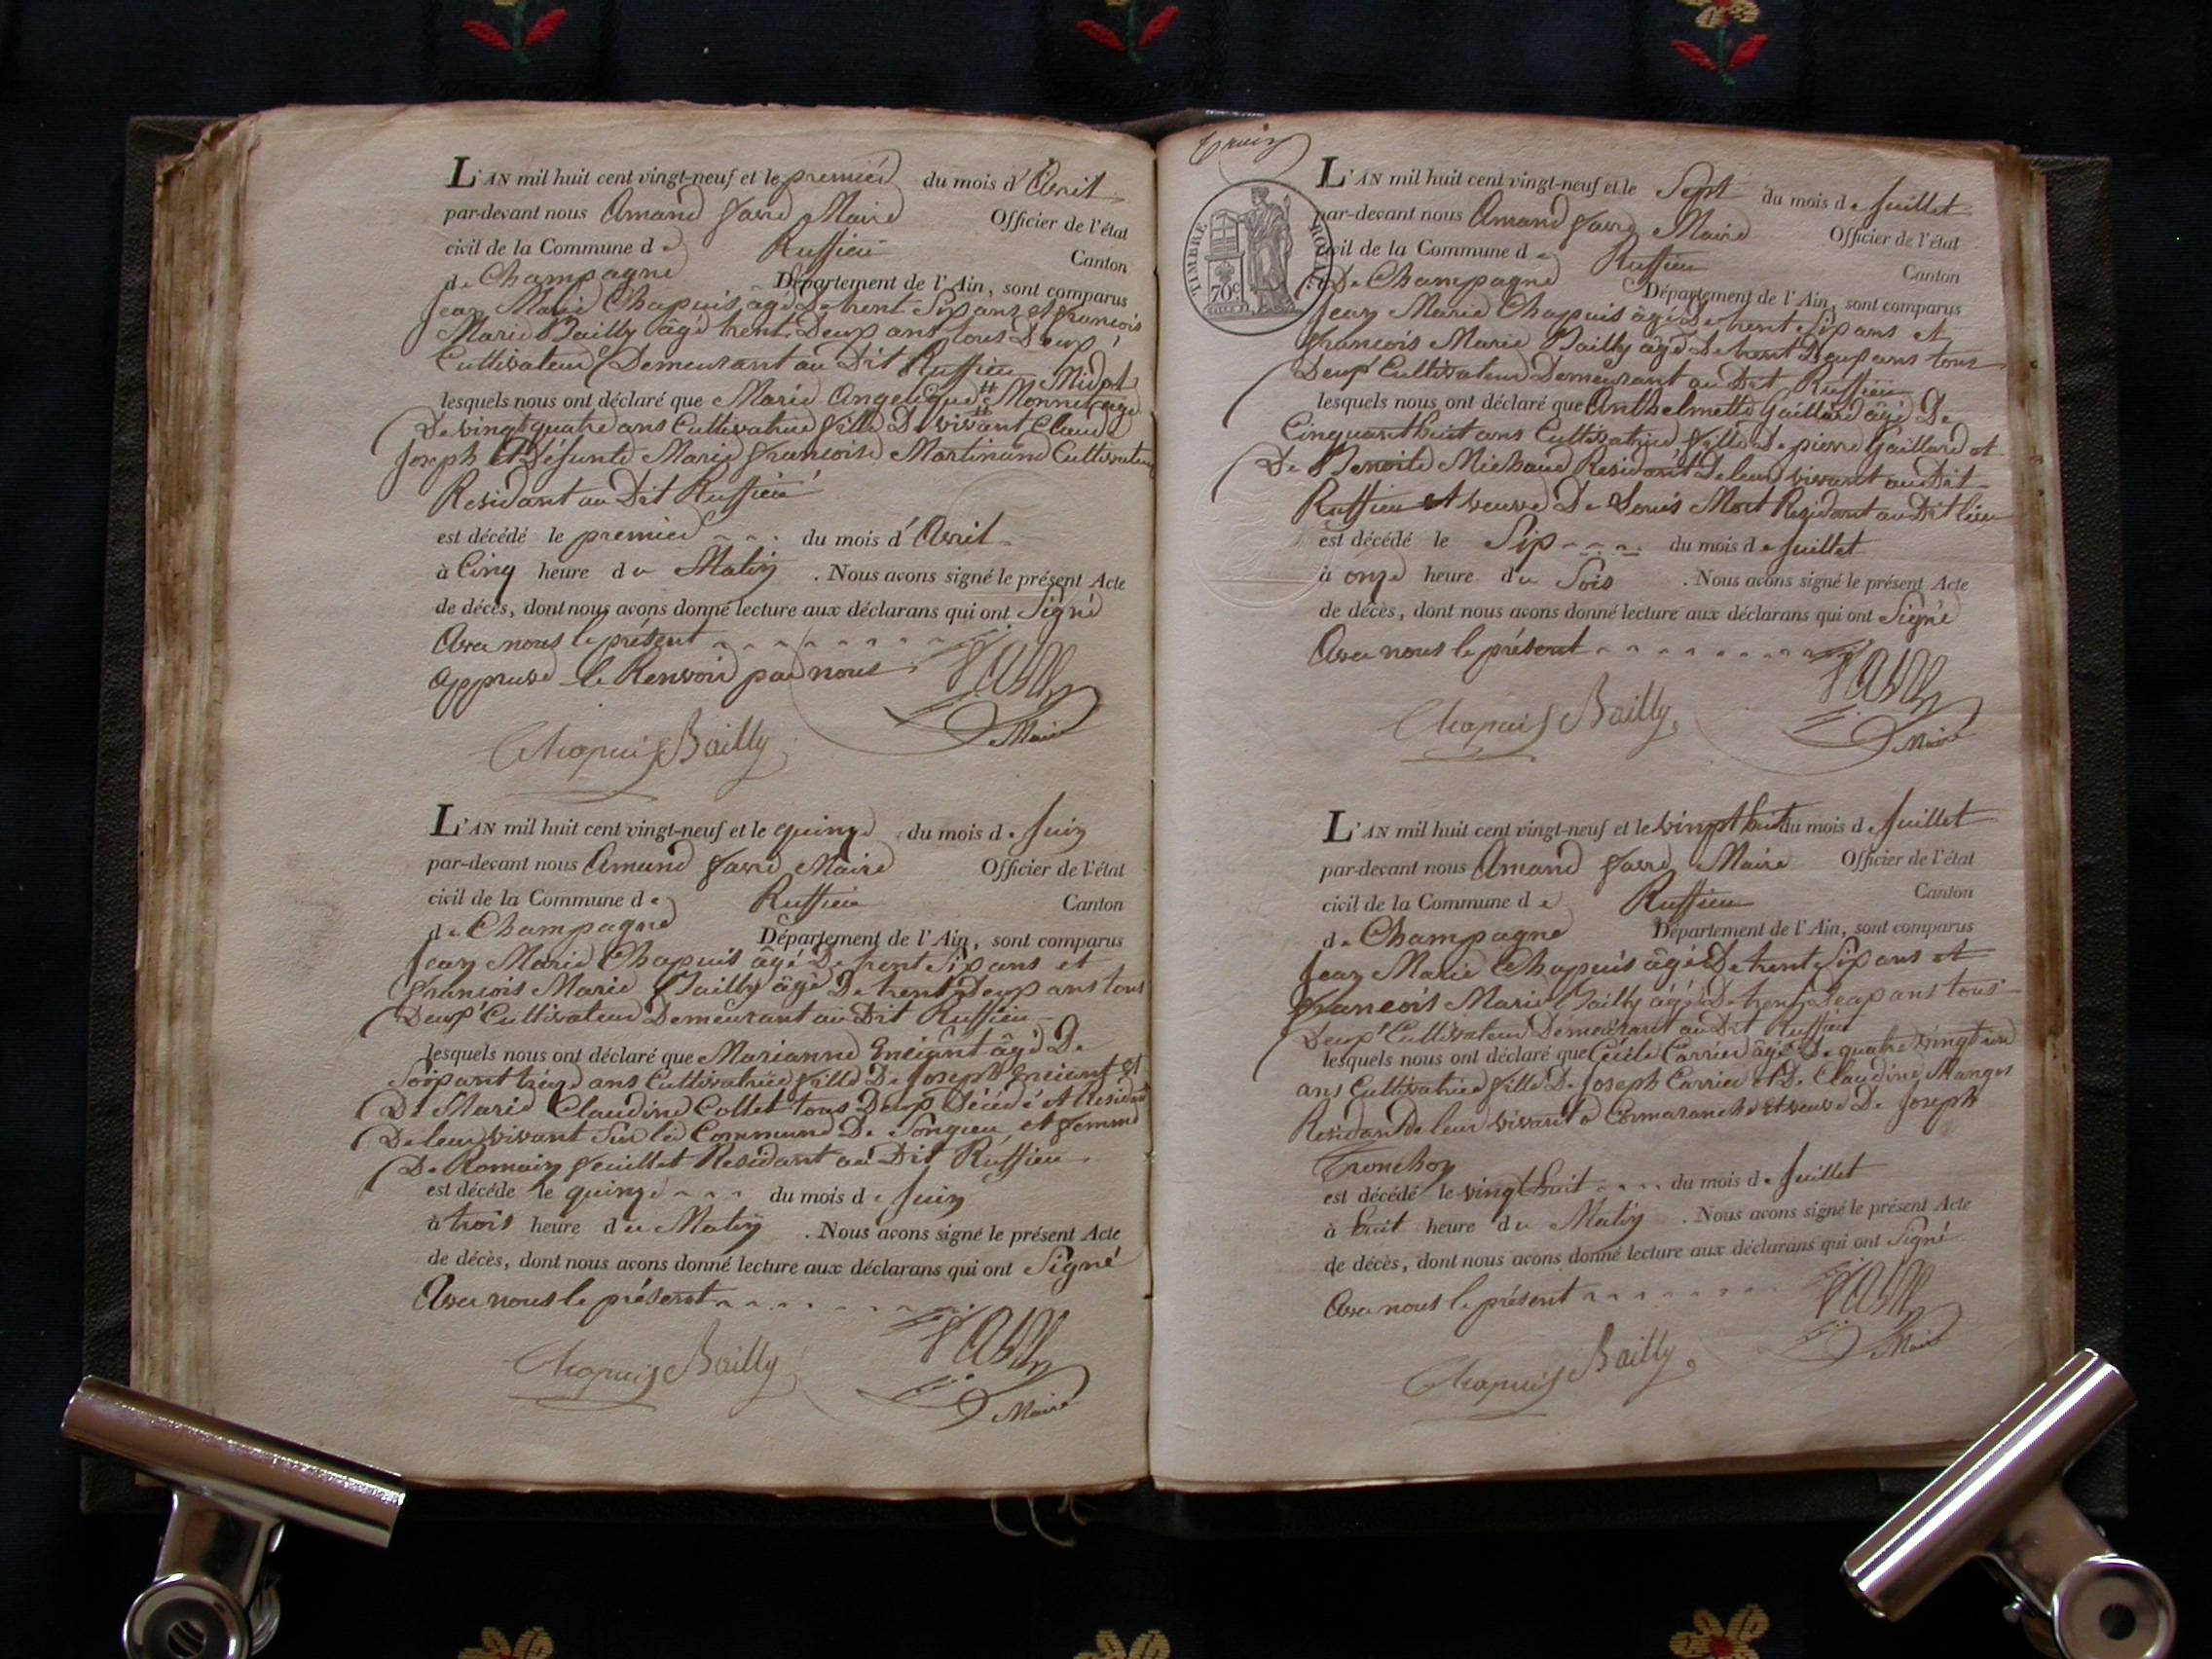 L'AN mil huit cent vingt-neuf et le premier du mois d'Avril
par-devant nous Amand favre Maire Officier de l'état
civil de la Commune de Ruffieu Canton
de Champagne Département de l'Ain, sont comparus
Jean Marie Chapuis âgé De trent Six ans et francois
Marie Bailly âgé trent Deux ans tous Deux
Cultivateur Demeurant au Dit Ruffieu
lesquels nous ont déclaré que Marie Angelique # Monnet agé
# Midol
De vingt quatre ans Cultivatrice fille De vivant Claude
Joseph Et Défunte Marie francoise Martinand Cultivateur
Residant au Dit Ruffieu
est décédé le premier du mois d'Avril
à Cinq heure du Matin . Nous avons signé le présent Acte
de décès, dont nous avons donné lecture aux déclarans qui ont Signé
Avec nous le présent
Approuvé le Renvoi par nous
favre
Maire
Chapuis Bailly
L'AN mil huit cent vingt-neuf et le quinze du mois de Juin
par-devant nous Amand favre Maire Officier de l'état
civil de la Commune de Ruffieu Canton
de Champagne Département de l'Ain, sont comparus
Jean Marie Chapuis âgé De trent Six ans et
francois Marie Bailly âgé De trent Deux ans tous
Deux Cultivateur Demeurant au Dit Ruffieu
lesquels nous ont déclaré que Marianne Enciant âgé De
Soixant treize ans Cultivatrice fille De Joseph Enciant Et
De Marie Claudine Collet tous Deux Décédé et Residant
De leur vivant Sur la Commune De Songieu et femme
De Romain feuillet Residant au Dit Ruffieu
est décédé le quinze du mois de Juin
à trois heure du Matin . Nous avons signé le présent Acte
de décès, dont nous avons donné lecture aux déclarans qui ont Signé
Avec nous le présent
favre
Maire
Chapuis Bailly
TIMBRE ROYAL
70c
L'AN mil huit cent vingt-neuf et le Sept du mois de Juillet
par-devant nous Amand favre Maire Officier de l'état
civil de la Commune de Ruffieu Canton
De Champagne Département de l'Ain, sont comparus
Jean Marie Chapuis âgé De trent Six ans et
francois Marie Bailly âgé De trent Deux ans tous
Deux Cultivateur Demeurant au Dit Ruffieu
lesquels nous ont déclaré que Anthelmette Gaillard âgé De
Cinquant huit ans Cultivatrice fille De pierre Gaillard et
De Benoite Michaud Residant De leur vivant au Dit
Ruffieu et veuve De Louis Mort Residant au Dit lieu
est décédé le Six du mois de Juillet
à onze heure du Soir . Nous avons signé le présent Acte
de décès, dont nous avons donné lecture aux déclarans qui ont Signé
Avec nous le présent
favre
Maire
Chapuis Bailly
L'AN mil huit cent vingt-neuf et le vingt huit du mois de Juillet
par-devant nous Amand favre Maire Officier de l'état
civil de la Commune de Ruffieu Canton
de Champagne Département de l'Ain, sont comparus
Jean Marie Chapuis âgé De trent Six ans et
francois Marie Bailly âgé De trent Deux ans tous
Deux Cultivateur Demeurant au Dit Ruffieu
lesquels nous ont déclaré que Cécile Carrier âgé De quatre vingt un
ans Cultivatrice fille De Joseph Carrier et De Claudine Manges
Residant De leur vivant a Cormaranche Et veuve De Joseph
Tronchon
est décédé le vingt huit du mois de Juillet
à huit heure du Matin . Nous avons signé le présent Acte
de décès, dont nous avons donné lecture aux déclarans qui ont Signé
Avec nous le présent
favre
Maire
Chapuis Bailly